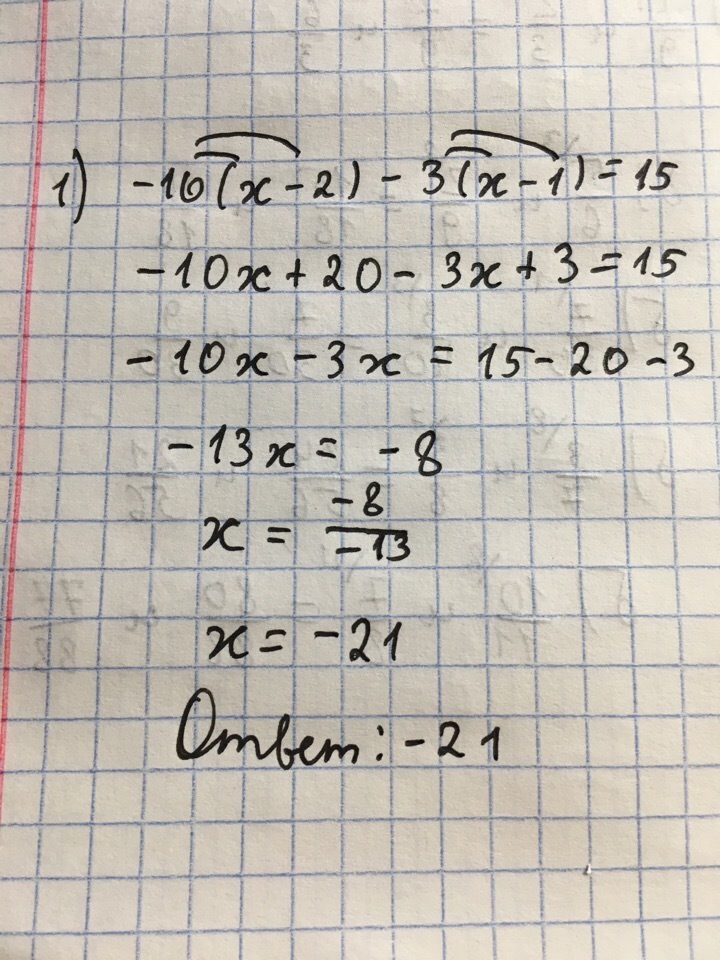 1) -10(x-2)-3(x-1)=15
-10x+20-3x+3=15
-10x-3x=15-20-3
-13x= -8
x= -8/-13
x=-21
Ответ: -21